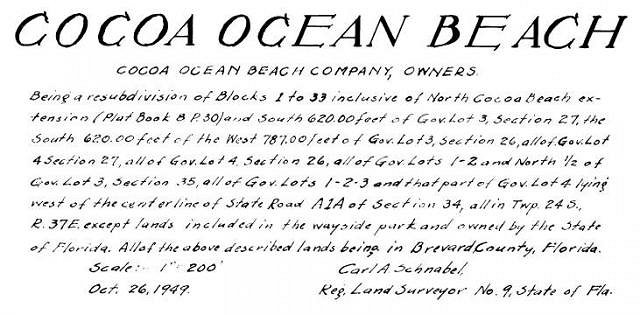 COCOA OCEAN BEACH
COCOA OCEAN BEACH COMPANY, OWNERS.
Being a resubdivision of Blocks 1 to 33 inclusive of North Cocoa Beach ex-
tension (Plat Book 8 P.30) and South 620.00 feet of Gov. Lot 3, Section 27, the
South 620.00 feet of the West 787.00 feet of Gov. Lot 3, Section 26, all of Gov. Lot
4 Section 27, all of Gov. Lot 4, Section 26, all of Gov. Lots 1-2 and North ½ of
Gov. Lot 3, Section 35, all of Gov. Lots 1-2-3 and that part of Gov. Lot 4 lying
west of the centerline of State Road A1A of Section 34, all in Twp. 24 S.,
R. 37 E. except lands included in the wayside park and owned by the State
of Florida. All of the above described lands being in Brevard County, Florida.
Scale:- 1" = 200' Carl A. Schnabel.
Oct. 26, 1949. Reg. Land Surveyor No. 9, State of Fla.